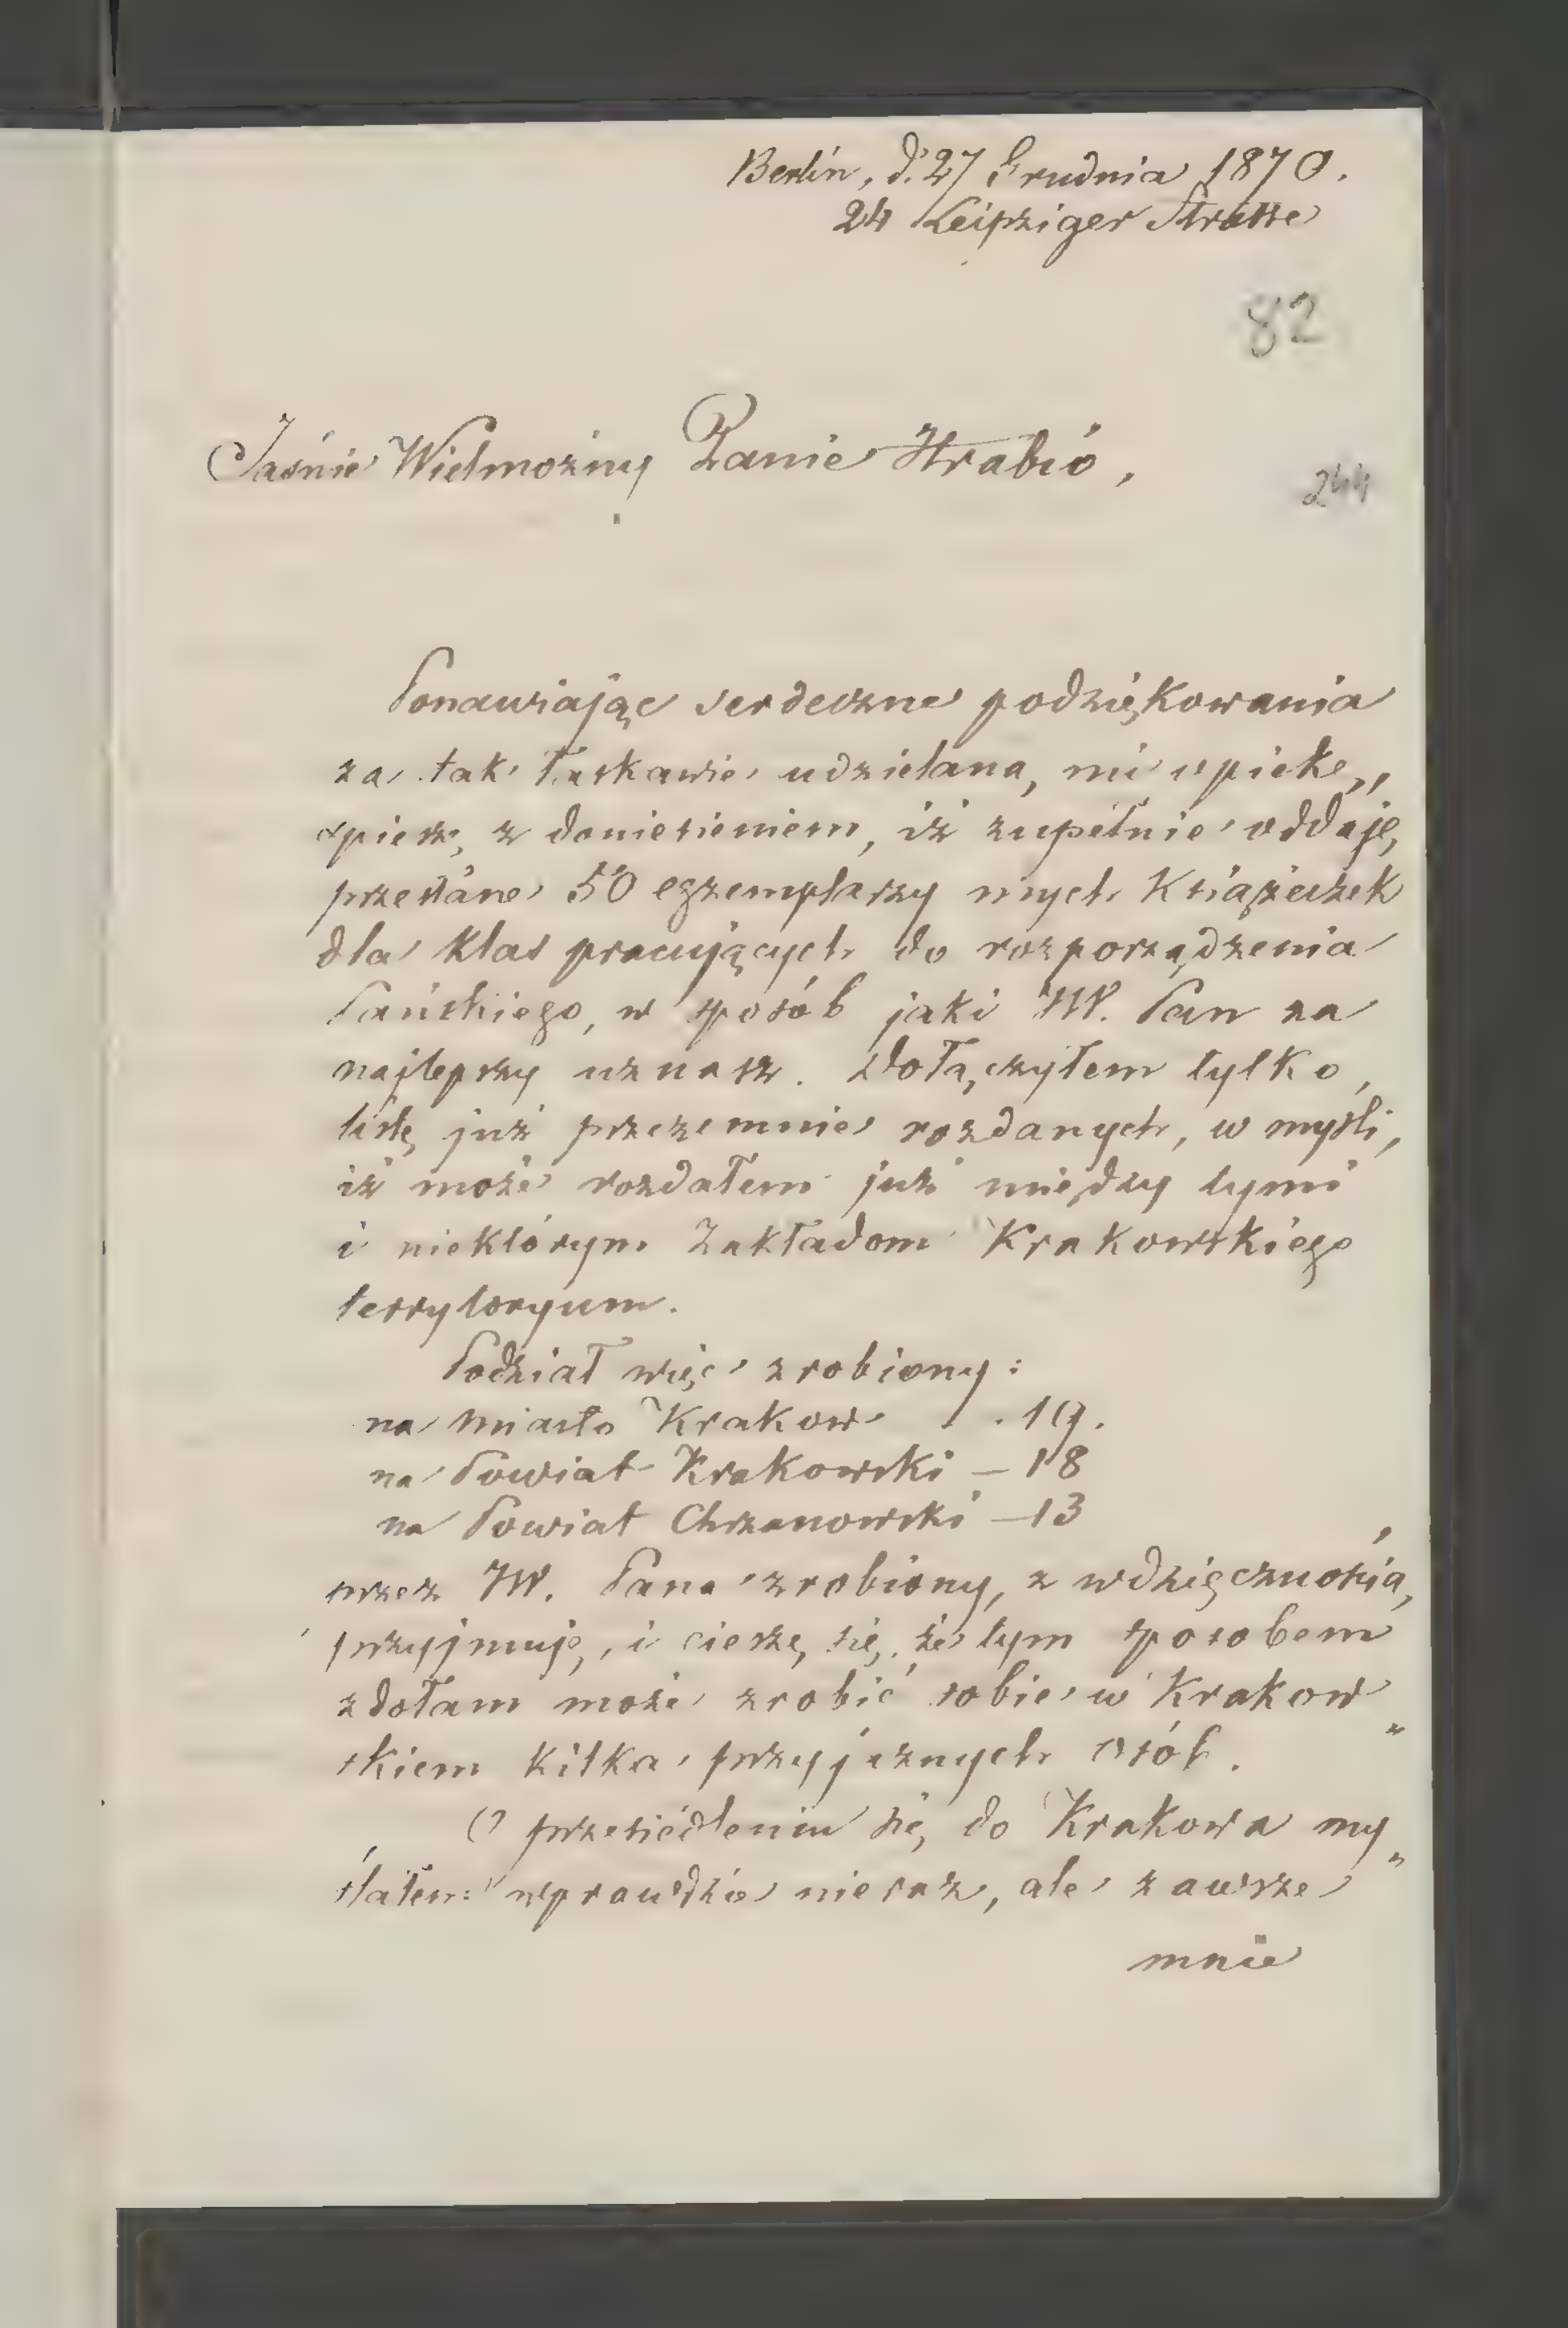 Berlin, d. 27 Grudnia 1870.
24 Leipziger Strasse
82
Jaśnie Wielmożny Panie Hrabio,
244
Ponawiając serdeczne podziękowania
za tak łaskawie udzielaną mi opiekę,
spieszę z doniesieniem, iż zupełnie oddaję
przesłane 50 egzemplarzy mych Książeczek
dla klas pracujących do rozporządzenia
Pańskiego, w sposób jaki JW. Pan za
najlepszy uznasz. Dołączyłem tylko
listę już przezemnie rozdanych, w myśli,
iż może rozdałem już między tymi
i niektórym Zakładom Krakowskiego
terrytoryum.
Podział więc zrobiony:
na miasto Krakow . . 19.
na Powiat Krakowski – 18
na Powiat Chrzanowski – 13
przez JW. Pana zrobiony, z wdzięcznością
przyjmuję, i cieszę się, że tym sposobem
zdołam może zrobić sobie w Krakow„
skiem kilka przyjaznych osób.
O przesiedleniu się do Krakowa my„
ślałem wprawdzie nieraz, ale zawsze
mnie